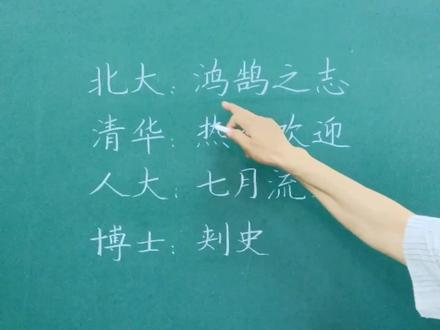 北大：鸿鹄之志
清华：热 欢迎
人大：七月流
博士：刺史